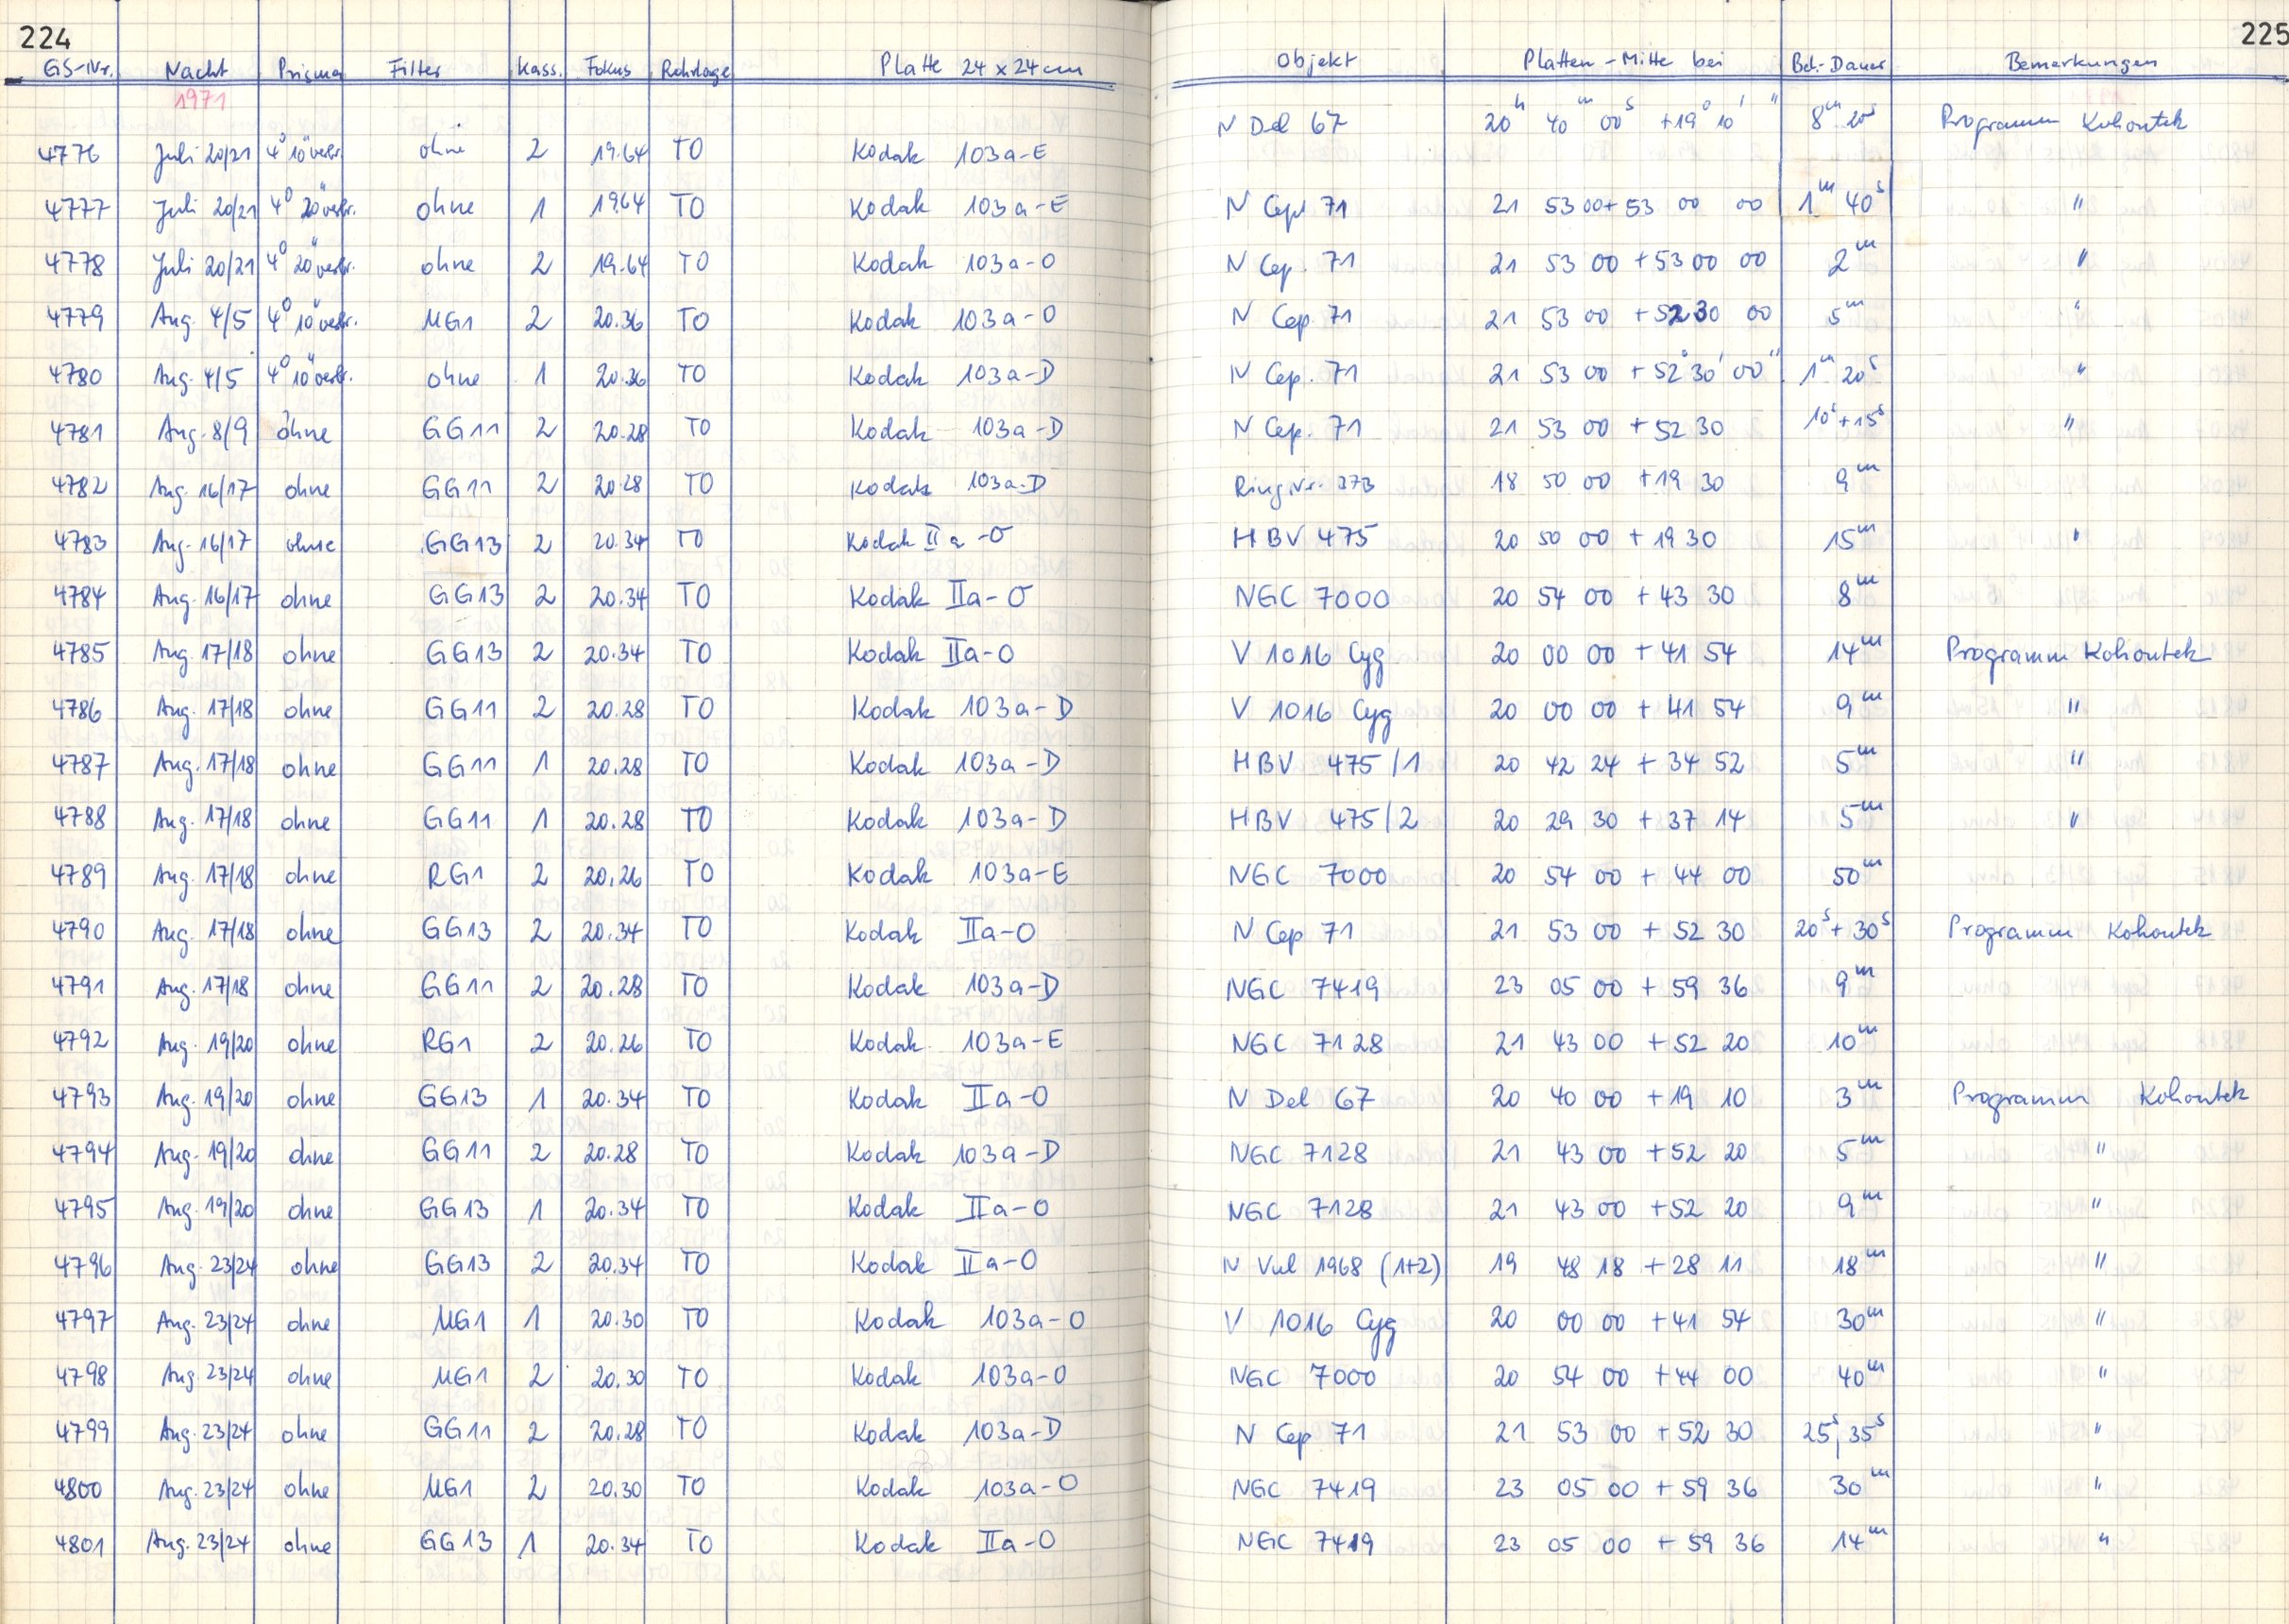 224
225
GS-Nr. Nacht Prisma Filter Kass. Fokus Rohrlage Platte 24 x 24 cm Objekt Platten-Mitte bei Bel.-Dauer Bemerkungen
1971
4776 Juli 20/21 4° 10ö verbr. ohne 2 19.64 TO Kodak 103a-E N Del 67 20h 40m 00s +19° 10' " 8m 20s Programm Kohoutek
4777 Juli 20/21 4° 20ö verbr. ohne 1 19.64 TO Kodak 103a-E N Cep 71 21 53 00 + 53 00 00 1m 40s "
4778 Juli 20/21 4° 20ö verbr. ohne 2 19.64 TO Kodak 103a-O N Cep. 71 21 53 00 + 53 00 00 2m "
4779 Aug. 4/5 4° 10ö verbr. UG1 2 20.36 TO Kodak 103a-O N Cep. 71 21 53 00 + 52 30 00 5m "
4780 Aug. 4/5 4° 10ö verbr. ohne 1 20.36 TO Kodak 103a-D N Cep. 71 21 53 00 + 52° 30' 00" 1m 20s "
4781 Aug. 8/9 ohne GG11 2 20.28 TO Kodak 103a-D N Cep. 71 21 53 00 + 52 30 10s + 15s "
4782 Aug. 16/17 ohne GG11 2 20.28 TO Kodak 103a-D Ring Nr. 373 18 50 00 +19 30 9m
4783 Aug. 16/17 ohne GG13 2 20.34 TO Kodak IIa-O HBV 475 20 50 00 + 19 30 15m "
4784 Aug. 16/17 ohne GG13 2 20.34 TO Kodak IIa-O NGC 7000 20 54 00 + 43 30 8m
4785 Aug. 17/18 ohne GG13 2 20.34 TO Kodak IIa-O V 1016 Cyg 20 00 00 + 41 54 14m Programm Kohoutek
4786 Aug. 17/18 ohne GG11 2 20.28 TO Kodak 103a-D V 1016 Cyg 20 00 00 + 41 54 9m "
4787 Aug. 17/18 ohne GG11 1 20.28 TO Kodak 103a-D HBV 475/1 20 42 24 + 34 52 5m "
4788 Aug. 17/18 ohne GG11 1 20.28 TO Kodak 103a-D HBV 475/2 20 29 30 + 37 14 5m "
4789 Aug. 17/18 ohne RG1 2 20.26 TO Kodak 103a-E NGC 7000 20 54 00 + 44 00 50m
4790 Aug. 17/18 ohne GG13 2 20.34 TO Kodak IIa-O N Cep 71 21 53 00 + 52 30 20s + 30s Programm Kohoutek
4791 Aug. 17/18 ohne GG11 2 20.28 TO Kodak 103a-D NGC 7419 23 05 00 + 59 36 9m
4792 Aug. 19/20 ohne RG1 2 20.26 TO Kodak 103a-E NGC 7128 21 43 00 + 52 20 10m
4793 Aug. 19/20 ohne GG13 1 20.34 TO Kodak IIa-O N Del 67 20 40 00 +19 10 3m Programm Kohoutek
4794 Aug. 19/20 ohne GG11 2 20.28 TO Kodak 103a-D NGC 7128 21 43 00 +52 20 5m "
4795 Aug. 19/20 ohne GG13 1 20.34 TO Kodak IIa-O NGC 7128 21 43 00 +52 20 9m "
4796 Aug. 23/24 ohne GG13 2 20.34 TO Kodak IIa-O N Vul 1968 (1+2) 19 48 18 + 28 11 18m "
4797 Aug. 23/24 ohne UG1 1 20.30 TO Kodak 103a-O V 1016 Cyg 20 00 00 +41 54 30m "
4798 Aug. 23/24 ohne UG1 2 20.30 TO Kodak 103a-O NGC 7000 20 54 00 +44 00 40m "
4799 Aug. 23/24 ohne GG11 2 20.28 TO Kodak 103a-D N Cep 71 21 53 00 +52 30 25s, 35s "
4800 Aug. 23/24 ohne UG1 2 20.30 TO Kodak 103a-O NGC 7419 23 05 00 + 59 36 30m "
4801 Aug. 23/24 ohne GG13 1 20.34 TO Kodak IIa-O NGC 7419 23 05 00 + 59 36 14m "